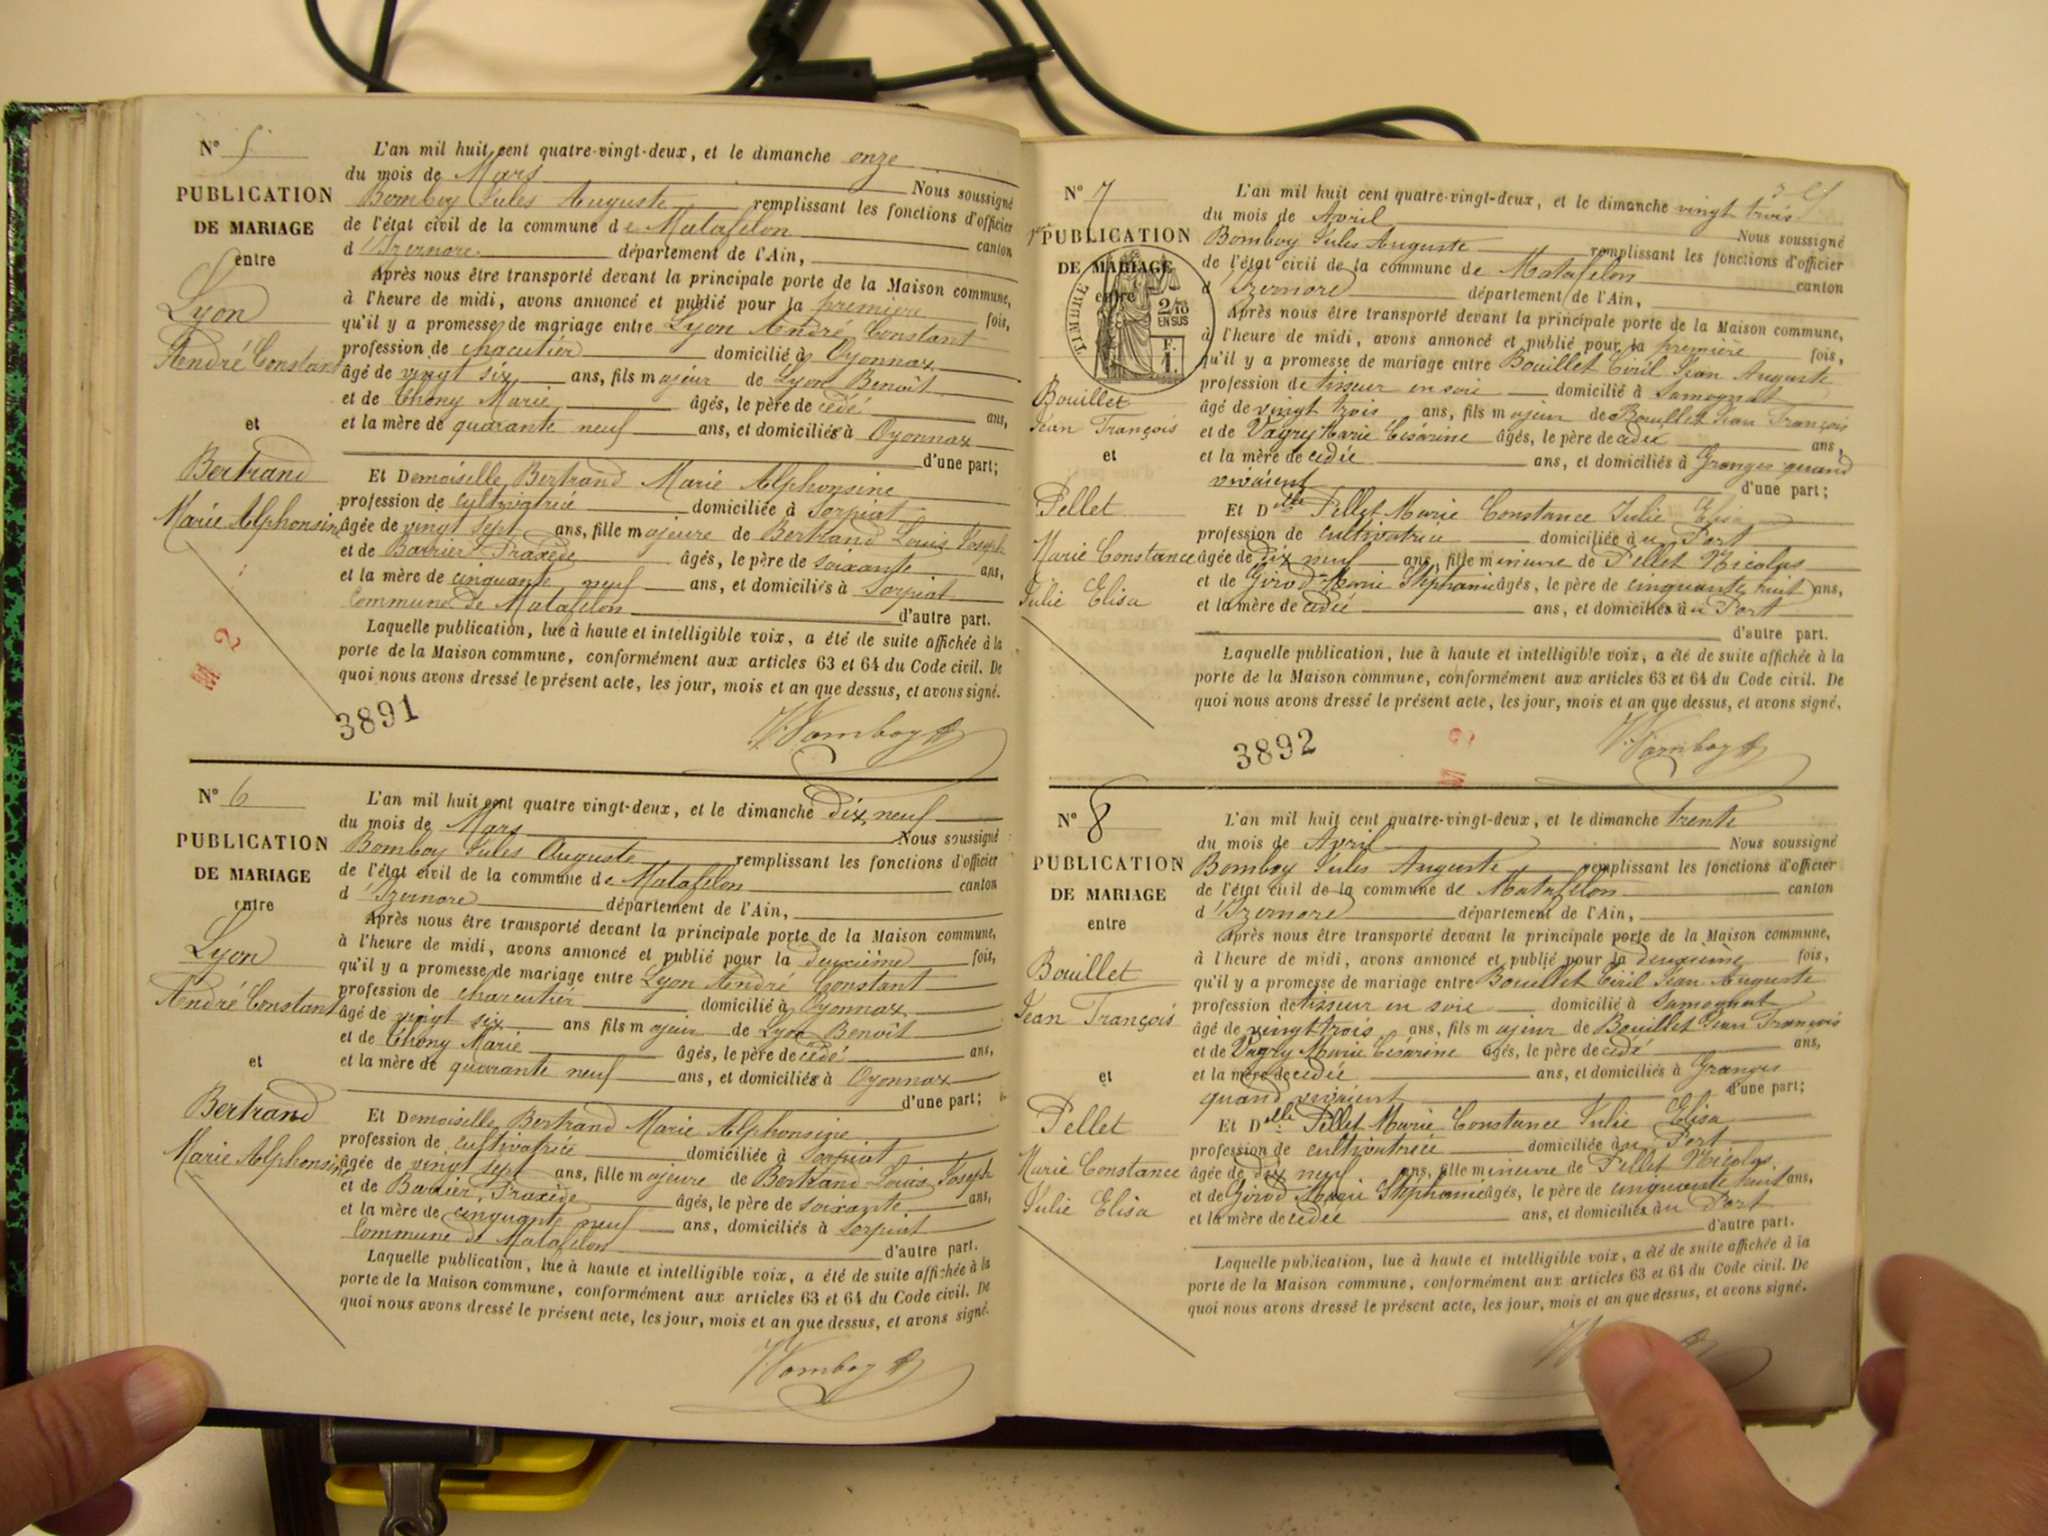 N° 5
PUBLICATION
DE MARIAGE
entre
Lyon
André Constant
et
Bertrand
Marie Alphonsine
L'an mil huit cent quatre-vingt-deux, et le dimanche onze
du mois de Mars Nous soussigné
Bomboy Jules Auguste remplissant les fonctions d'officier
de l'état civil de la commune de Matafelon canton
d'Izernore département de l'Ain,
Après nous être transporté devant la principale porte de la Maison commune,
à l'heure de midi, avons annoncé et publié pour la première fois,
qu'il y a promesse de mariage entre Lyon André Constant
profession de chacutier domicilié à Oyonnax
âgé de vingt six ans, fils majeur de Lyon Benoît
et de Chony Marie âgés, le père de cédé ans,
et la mère de quarante neuf ans, et domiciliés à Oyonnax
d'une part;
Et Demoiselle Bertrand Marie Alphonsine
profession de cultivatrice domiciliée à Sorpiat
âgée de vingt sept ans, fille majeure de Bertrand Louis Joseph
et de Barrier Praxède âgés, le père de soixante ans,
et la mère de cinquante neuf ans, et domiciliés à Sorpiat
Commune de Matafelon d'autre part.
Laquelle publication, lue à haute et intelligible voix, a été de suite affichée à la
porte de la Maison commune, conformément aux articles 63 et 64 du Code civil. De
quoi nous avons dressé le présent acte, les jour, mois et an que dessus, et avons signé.
M 2
3891
Bomboy
N° 6
PUBLICATION
DE MARIAGE
entre
Lyon
André Constant
et
Bertrand
Marie Alphonsine
L'an mil huit cent quatre vingt-deux, et le dimanche Dix neuf
du mois de Mars Nous soussigné
Bomboy Jules Auguste remplissant les fonctions d'officier
de l'état civil de la commune de Matafelon canton
d'Izernore département de l'Ain,
Après nous être transporté devant la principale porte de la Maison commune,
à l'heure de midi, avons annoncé et publié pour la deuxième fois,
qu'il y a promesse de mariage entre Lyon André Constant
profession de charcutier domicilié à Oyonnax
âgé de vingt six ans fils majeur de Lyon Benoît
et de Chony Marie âgés, le père de cédé ans,
et la mère de quarante neuf ans, et domiciliés à Oyonnax
d'une part;
Et Demoiselle Bertrand Marie Alphonsine
profession de cultivatrice domiciliée à Sorpiat
âgée de vingt sept ans, fille majeure de Bertrand Louis Joseph
et de Barrier Praxède âgés, le père de soixante ans,
et la mère de cinquante neuf ans, domiciliés à Sorpiat
Commune de Matafelon d'autre part.
Laquelle publication, lue à haute et intelligible voix, a été de suite affichée à la
porte de la Maison commune, conformément aux articles 63 et 64 du Code civil. De
quoi nous avons dressé le présent acte, les jour, mois et an que dessus, et avons signé.
Bomboy
N° 7
PUBLICATION
DE MARIAGE
entre
TIMBRE
2/10
EN SUS
F.
1.
Bouillet
Jean François
et
Pellet
Marie Constance
Julie Elisa
L'an mil huit cent quatre-vingt-deux, et le dimanche vingt trois
du mois de Avril Nous soussigné
Bomboy Jules Auguste remplissant les fonctions d'officier
de l'état civil de la commune de Matafelon canton
d'Izernore département de l'Ain,
Après nous être transporté devant la principale porte de la Maison commune,
à l'heure de midi, avons annoncé et publié pour la première fois,
qu'il y a promesse de mariage entre Bouillet Ciril Jean Auguste
profession de tisseur en soie domicilié à Samognat
âgé de vingt trois ans, fils majeur de Bouillet Jean François
et de Vagry Marie Césarine âgés, le père de cédée ans,
et la mère de cédée ans, et domiciliés à Granges quand
vivaient d'une part;
Et Dlle Pellet Marie Constance Julie Elisa
profession de cultivatrice domiciliée au Port
âgée de dix neuf ans, fille mineure de Pellet Nicolas
et de Girod Marie Stéphanie âgés, le père de cinquante huit ans,
et la mère de cédée ans, et domiciliés au Port
d'autre part.
Laquelle publication, lue à haute et intelligible voix, a été de suite affichée à la
porte de la Maison commune, conformément aux articles 63 et 64 du Code civil. De
quoi nous avons dressé le présent acte, les jour, mois et an que dessus, et avons signé.
3892
M 2
Bomboy
N° 8
PUBLICATION
DE MARIAGE
entre
Bouillet
Jean François
et
Pellet
Marie Constance
Julie Elisa
L'an mil huit cent quatre-vingt-deux, et le dimanche trente
du mois de Avril Nous soussigné
Bomboy Jules Auguste remplissant les fonctions d'officier
de l'état civil de la commune de Matafelon canton
d'Izernore département de l'Ain,
Après nous être transporté devant la principale porte de la Maison commune,
à l'heure de midi, avons annoncé et publié pour la deuxième fois,
qu'il y a promesse de mariage entre Bouillet Ciril Jean Auguste
profession de tisseur en soie domicilié à Samognat
âgé de vingt trois ans, fils majeur de Bouillet Jean François
et de Vagry Marie Césarine âgés, le père de cédé ans,
et la mère de cédée ans, et domiciliés à Granges
quand vivaient d'une part;
Et Dlle Pellet Marie Constance Julie Elisa
profession de cultivatrice domiciliée au Port
âgée de dix neuf ans, fille mineure de Pellet Nicolas,
et de Girod Marie Stéphanie âgés, le père de cinquante huit ans,
et la mère de cédée ans, et domiciliés au Port
d'autre part.
Laquelle publication, lue à haute et intelligible voix, a été de suite affichée à la
porte de la Maison commune, conformément aux articles 63 et 64 du Code civil. De
quoi nous avons dressé le présent acte, les jour, mois et an que dessus, et avons signé.